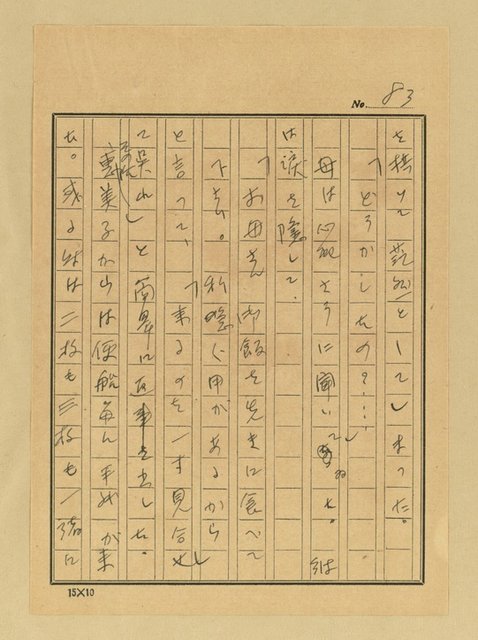 No. 83
を棋して茫然としてしまった。
「どうかしたの?……」
母は心配さうに聞いてゐた。
は涙を隠して、
「お母さん御飯を先きに食べて
下さい。私急ぐ用があるから
と言って、「来るのを一寸見合せ
て呉れ」と簡単に返事を出した。
その后恵美子からは便船毎に手紙が来
た。或る時は二枚も三枚も一緒に
15×10